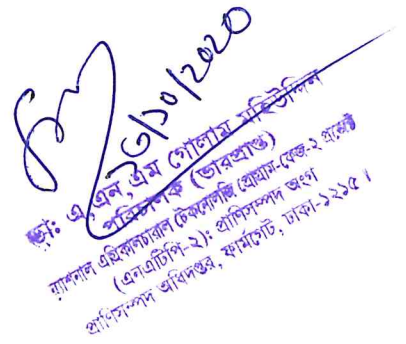 26/10/2020
ডাঃ এ,এন,এম গোলাম মহিউদ্দিন
পরিচালক (ভারপ্রাপ্ত)
ন্যাশনাল এগ্রিকালচারাল টেকনোলজি প্রোগ্রাম-ফেজ-২ প্রজেক্ট
(এনএটিপি-২): প্রাণিসম্পদ অংগ
প্রাণিসম্পদ অধিদপ্তর, ফার্মগেট, ঢাকা-১২১৫।